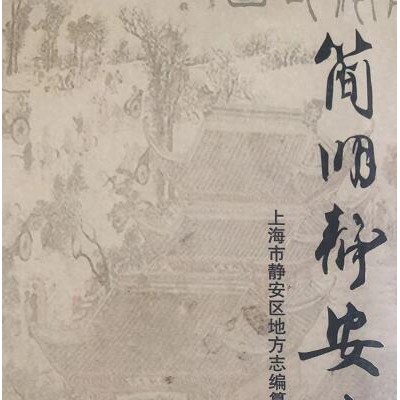 简明静安
上海市静安区地方志编